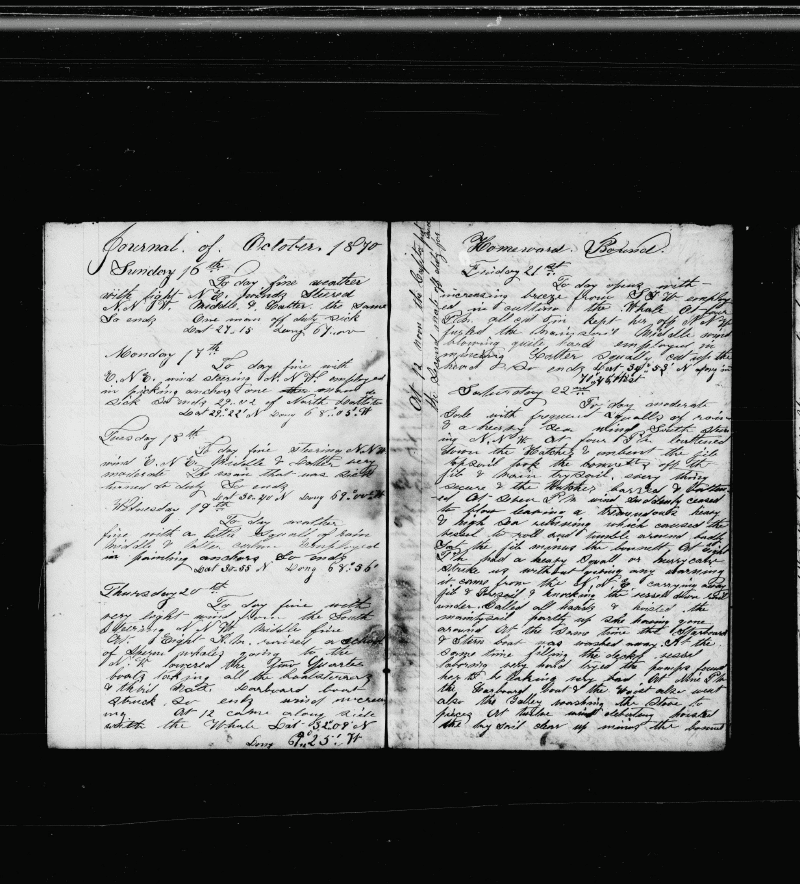 Journal. of. October. 1870
Sunday 16th
To day fine weather
with light N.E. winds Steered
N.N.W. Middle & Latter the same
So ends One man off duty sick
Lat 27.15 Long 67.00
Monday 17th
To day fine with
E.N.E. wind steering N.N.W. employed
in anchors one
sick So ends 29.22 of North Latitude
Lat 29.22' N Long 68.05 W
Tuesday 18th
To day fine steering N.N.W
wind E.N.E. Middle & Latter very
moderate The man that was sick
turned to duty So ends
Lat 30.40 N Long 69.00 W
Wednesday 19th
To day weather
fine with a little Squalls of rain
Middle & Latter Employed
in painting anchors So ends
Lat 30.55 N Long 68.36
Thursday 20th
To day fine with
very light wind from the South
Steering N.N.W Middle fine
At Eight A.M. raised a School
of Sperm whales going to the
N.W. lowered the
boats looking all the boatsteerers
& third Mate. Larboard boat
Struck So ends wind increas
ing At 12 came along side
with the Whale Lat 32.08 N
Long 69.25' W
At 12 noon the
the Second mate off duty for
Homeward. Bound.
Friday 21st
To day opens with
increasing breeze from S.S.W employ
ed in cutting the Whale At four
P.M. all cut in kept her off N.N.W
furled the mainsail Middle wind
blowing quite hard employed in
mincing Latter Squally cut up the
head So ends Lat 34°53' N Long in
70.46 West
Saturday 22nd
To day moderate
Gale with frequent Squalls of rain
& a heavy Sea wind South steer
ing N.N.W At four P.M. battened
down the Hatches & unbent the
topsail took the bonnets off the
jib & main trysail every thing
secure & the Hatches barred & batten
ed At Seven P.M wind Suddenly ceased
to blow leaving a tremendous heavy
& high Sea which caused the
vessel to roll and tumble around badly
Set the jib minus the bonnet At eight
P.M. had a heavy Squall or hurycane
strike us without giving any warning
it came from the N.N.E. carrying away
jib & trysail & knocking the vessell down Rail
under Called all hands & hoisted the
maintysail partly up she having gone
around At the same time the Starboard
& Stern boat was washed away At the
same time filling the decks vessel
laboring very hard tryed the pumps found
her to be leaking very bad. At Nine P.M
the Larboard boat & the Waist also went
also the Galley washing the Stove to
pieces At twelve wind abating hoisted
the try sail clear up minus the bonnet